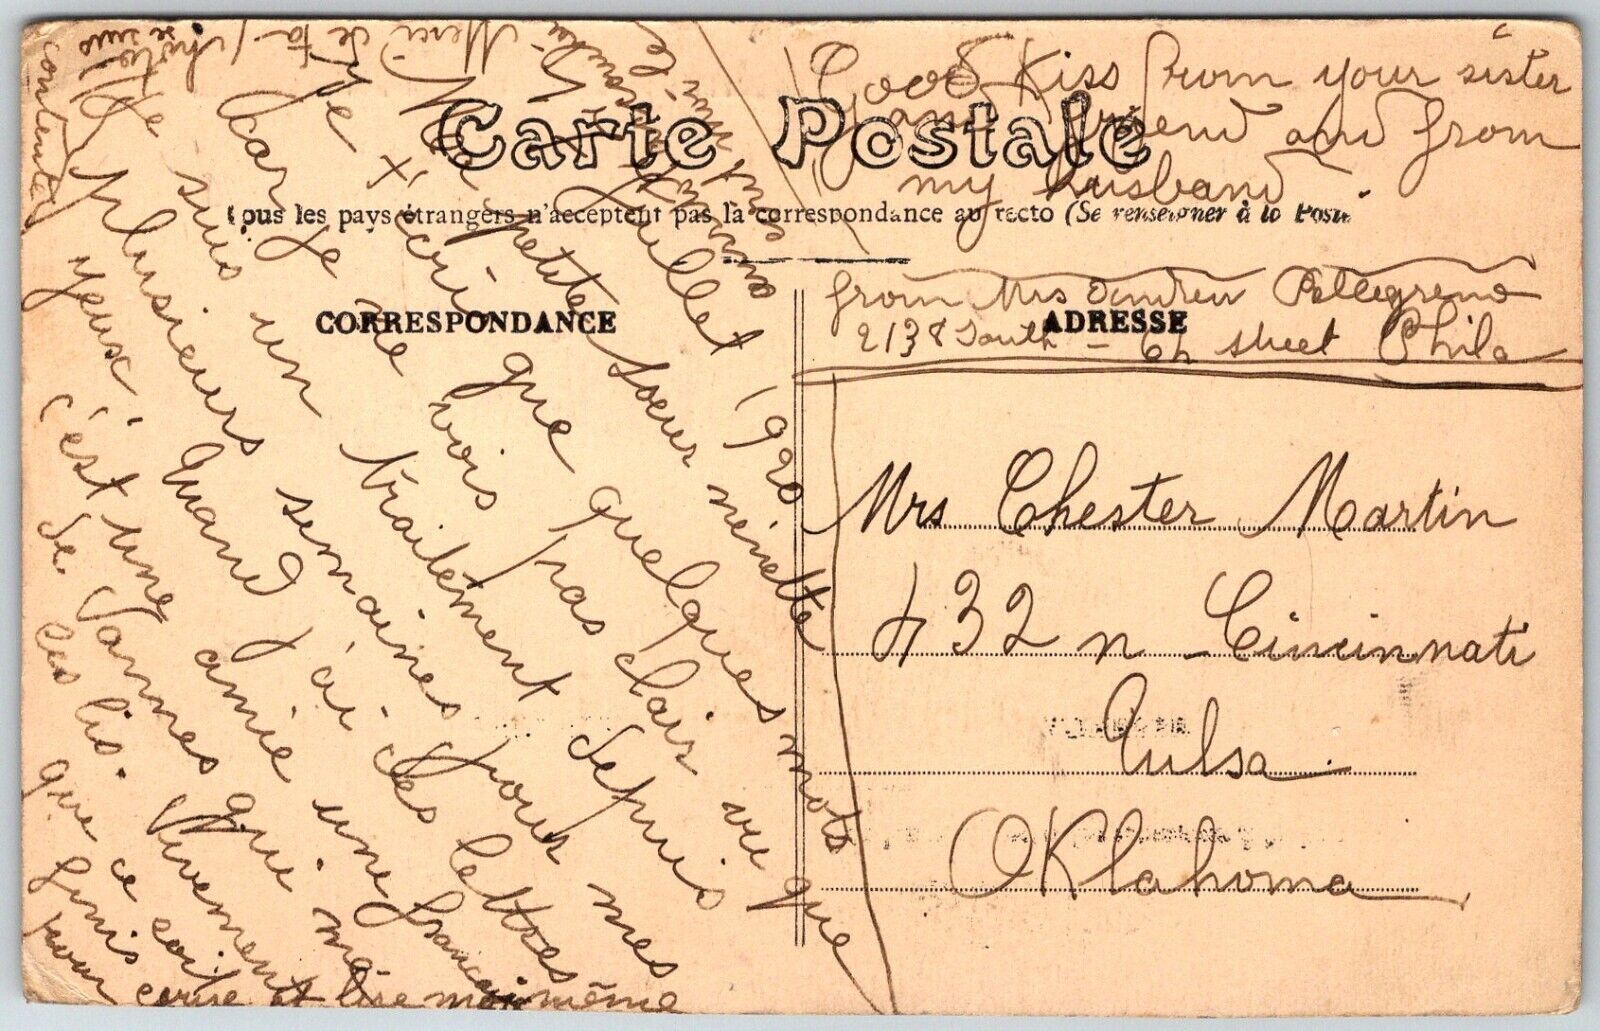 Carte Postale
Tous les pays étrangers n'acceptent pas la correspondance au recto (Se renseigner à la Poste
CORRESPONDANCE
ADRESSE
Good Kiss from your sister
and friend and from
my husband.
from Mrs Andrew Pellegreno
2138 South - 6h street Phila
Mrs Chester Martin
432 n - Cincinnati
Tulsa
Oklahoma
Juillet 1920
Ma petite soeur ninette
Je t'écris que quelques mots
car je ne vois pas clair vu que
Je suis un traitement depuis
plusieurs semaines pour mes
yeux. Quand j'ai des lettres
c'est une amie une française
de Vannes qui me
les lis. Vivement
que ce soit
finis
pour écrire et lire moi même
Merci de ta
je suis
contente